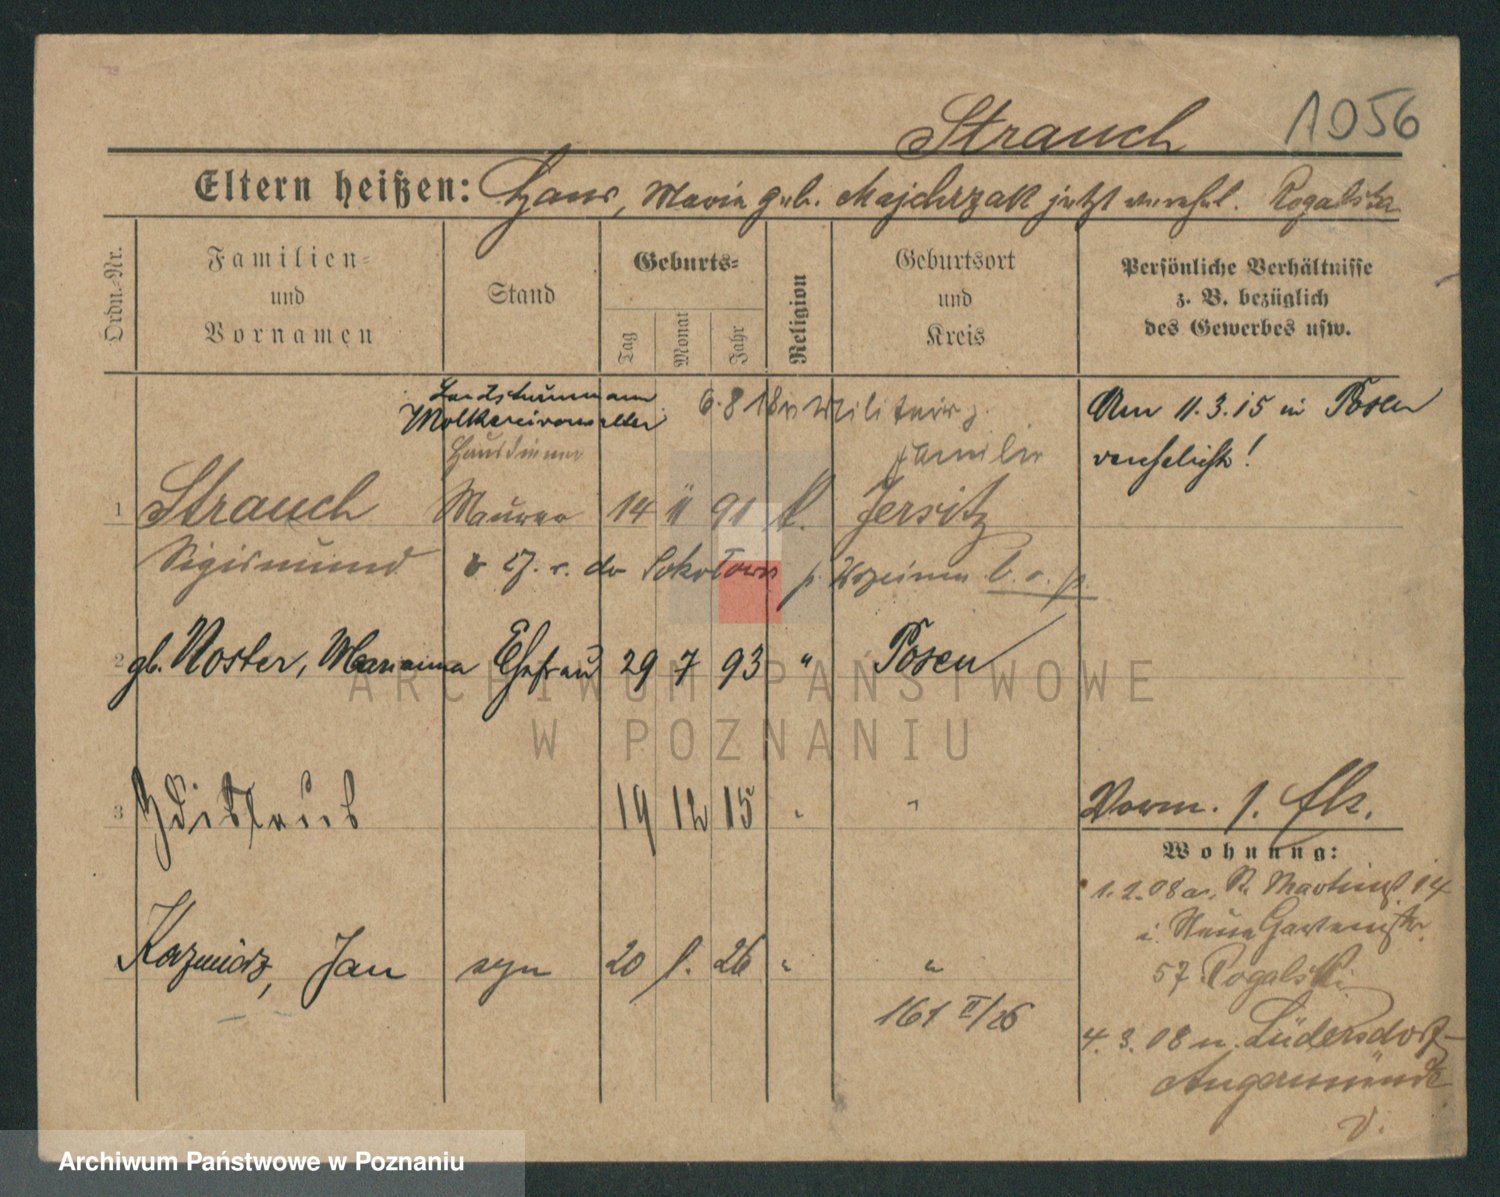 Strauch 1056
Eltern heißen: Hans, Maria geb. Majchrzak jetzt verehel. Rogalska
Ordn.-Nr.
Familien-
und
Vornamen
Stand
Geburts-
Tag
Monat
Jahr
Religion
Geburtsort
und
Kreis
Persönliche Verhältnisse
z. B. bezüglich
des Gewerbes usw.
Landsturmmann
Molkereiverwalter
Hausdiener
6. 8 18 Militair
familie
Am 11.3.15 in Posen
verehelicht!
1 Strauch Maurer 14 11 91 k. Jersitz
Sigismund
2 gb. Noster, Marianna Ehefrau 29 7 93 " Posen
3 Zdislaus 19 12 15 " "
Kazmierz, Jan syn 20 1. 26 " "
161 II/26
Vorm. s. Akr.
Wohnung:
1. 2. 08 a. St Martinst 14
i. Neue Gartenstr.
57 Rogalski
4. 3. 08 n. Lüdersdorf
Angermünde
V.
ARCHIWUM PAŃSTWOWE
W POZNANIU
Archiwum Państwowe w Poznaniu